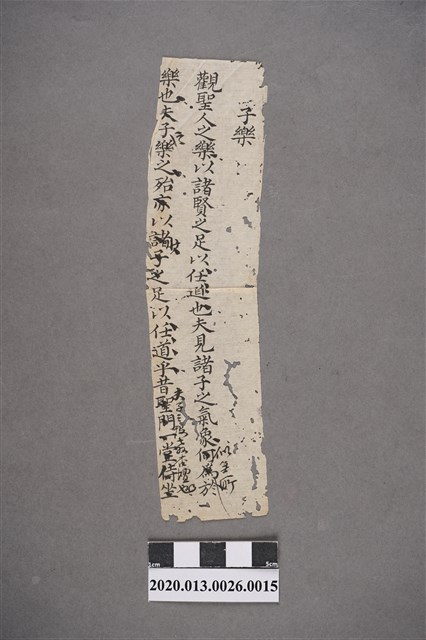 子樂
觀聖人之樂以諸賢之足以任道也夫見諸子之氣像何為於
樂也夫子樂之殆亦以諸子之足以任道乎昔聖門一堂侍坐
1cm 5cm
2020.013.0026.0015